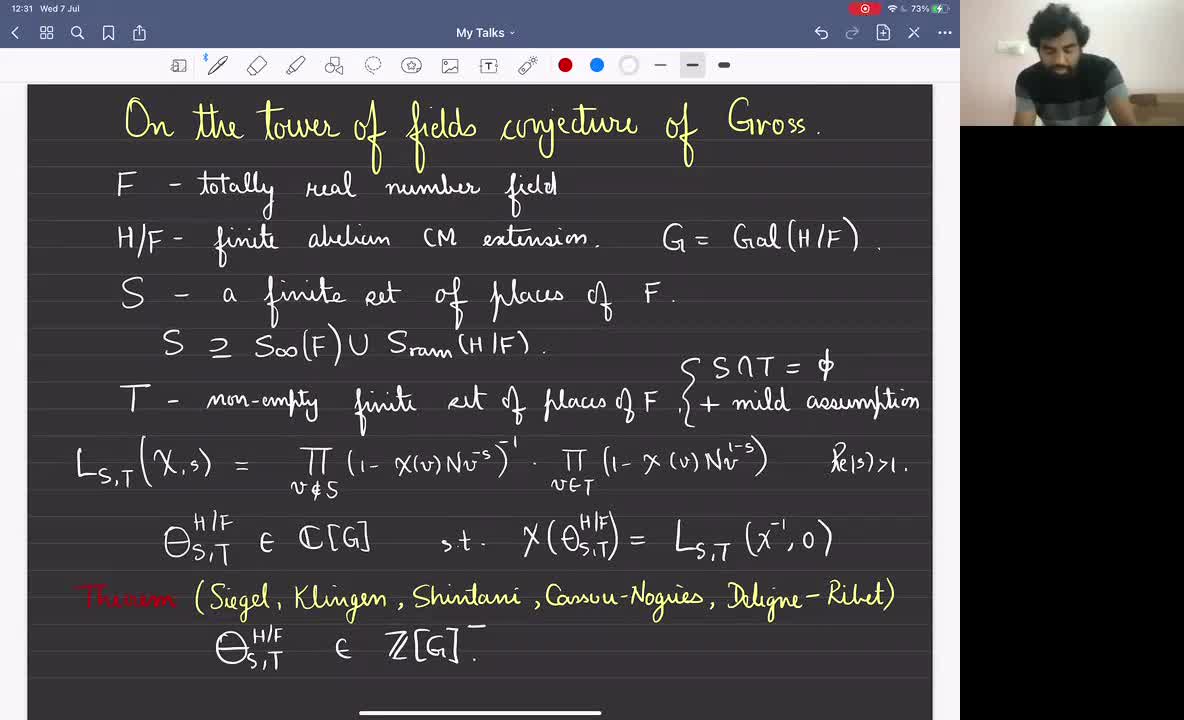 12:31 Wed 7 Jul
73%
My Talks
On the tower of fields conjecture of Gross.
F - totally real number field
H/F - finite abelian CM extension. G = Gal(H/F).
S - a finite set of places of F.
S ⊇ S∞(F) ∪ Sram(H/F).
T - non-empty finite set of places of F. { S∩T = ϕ
+ mild assumption
L_{S,T}(χ,s) = ∏_{v∉S} (1 - χ(v)Nv^{-s})^{-1} · ∏_{v∈T} (1 - χ(v)Nv^{1-s}) Re(s)>1.
Θ_{S,T}^{H/F} ∈ ℂ[G] s.t. χ(Θ_{S,T}^{H/F}) = L_{S,T}(χ^{-1},0)
Theorem (Siegel, Klingen, Shintani, Cassou-Noguès, Deligne-Ribet)
Θ_{S,T}^{H/F} ∈ ℤ[G]^{-}.